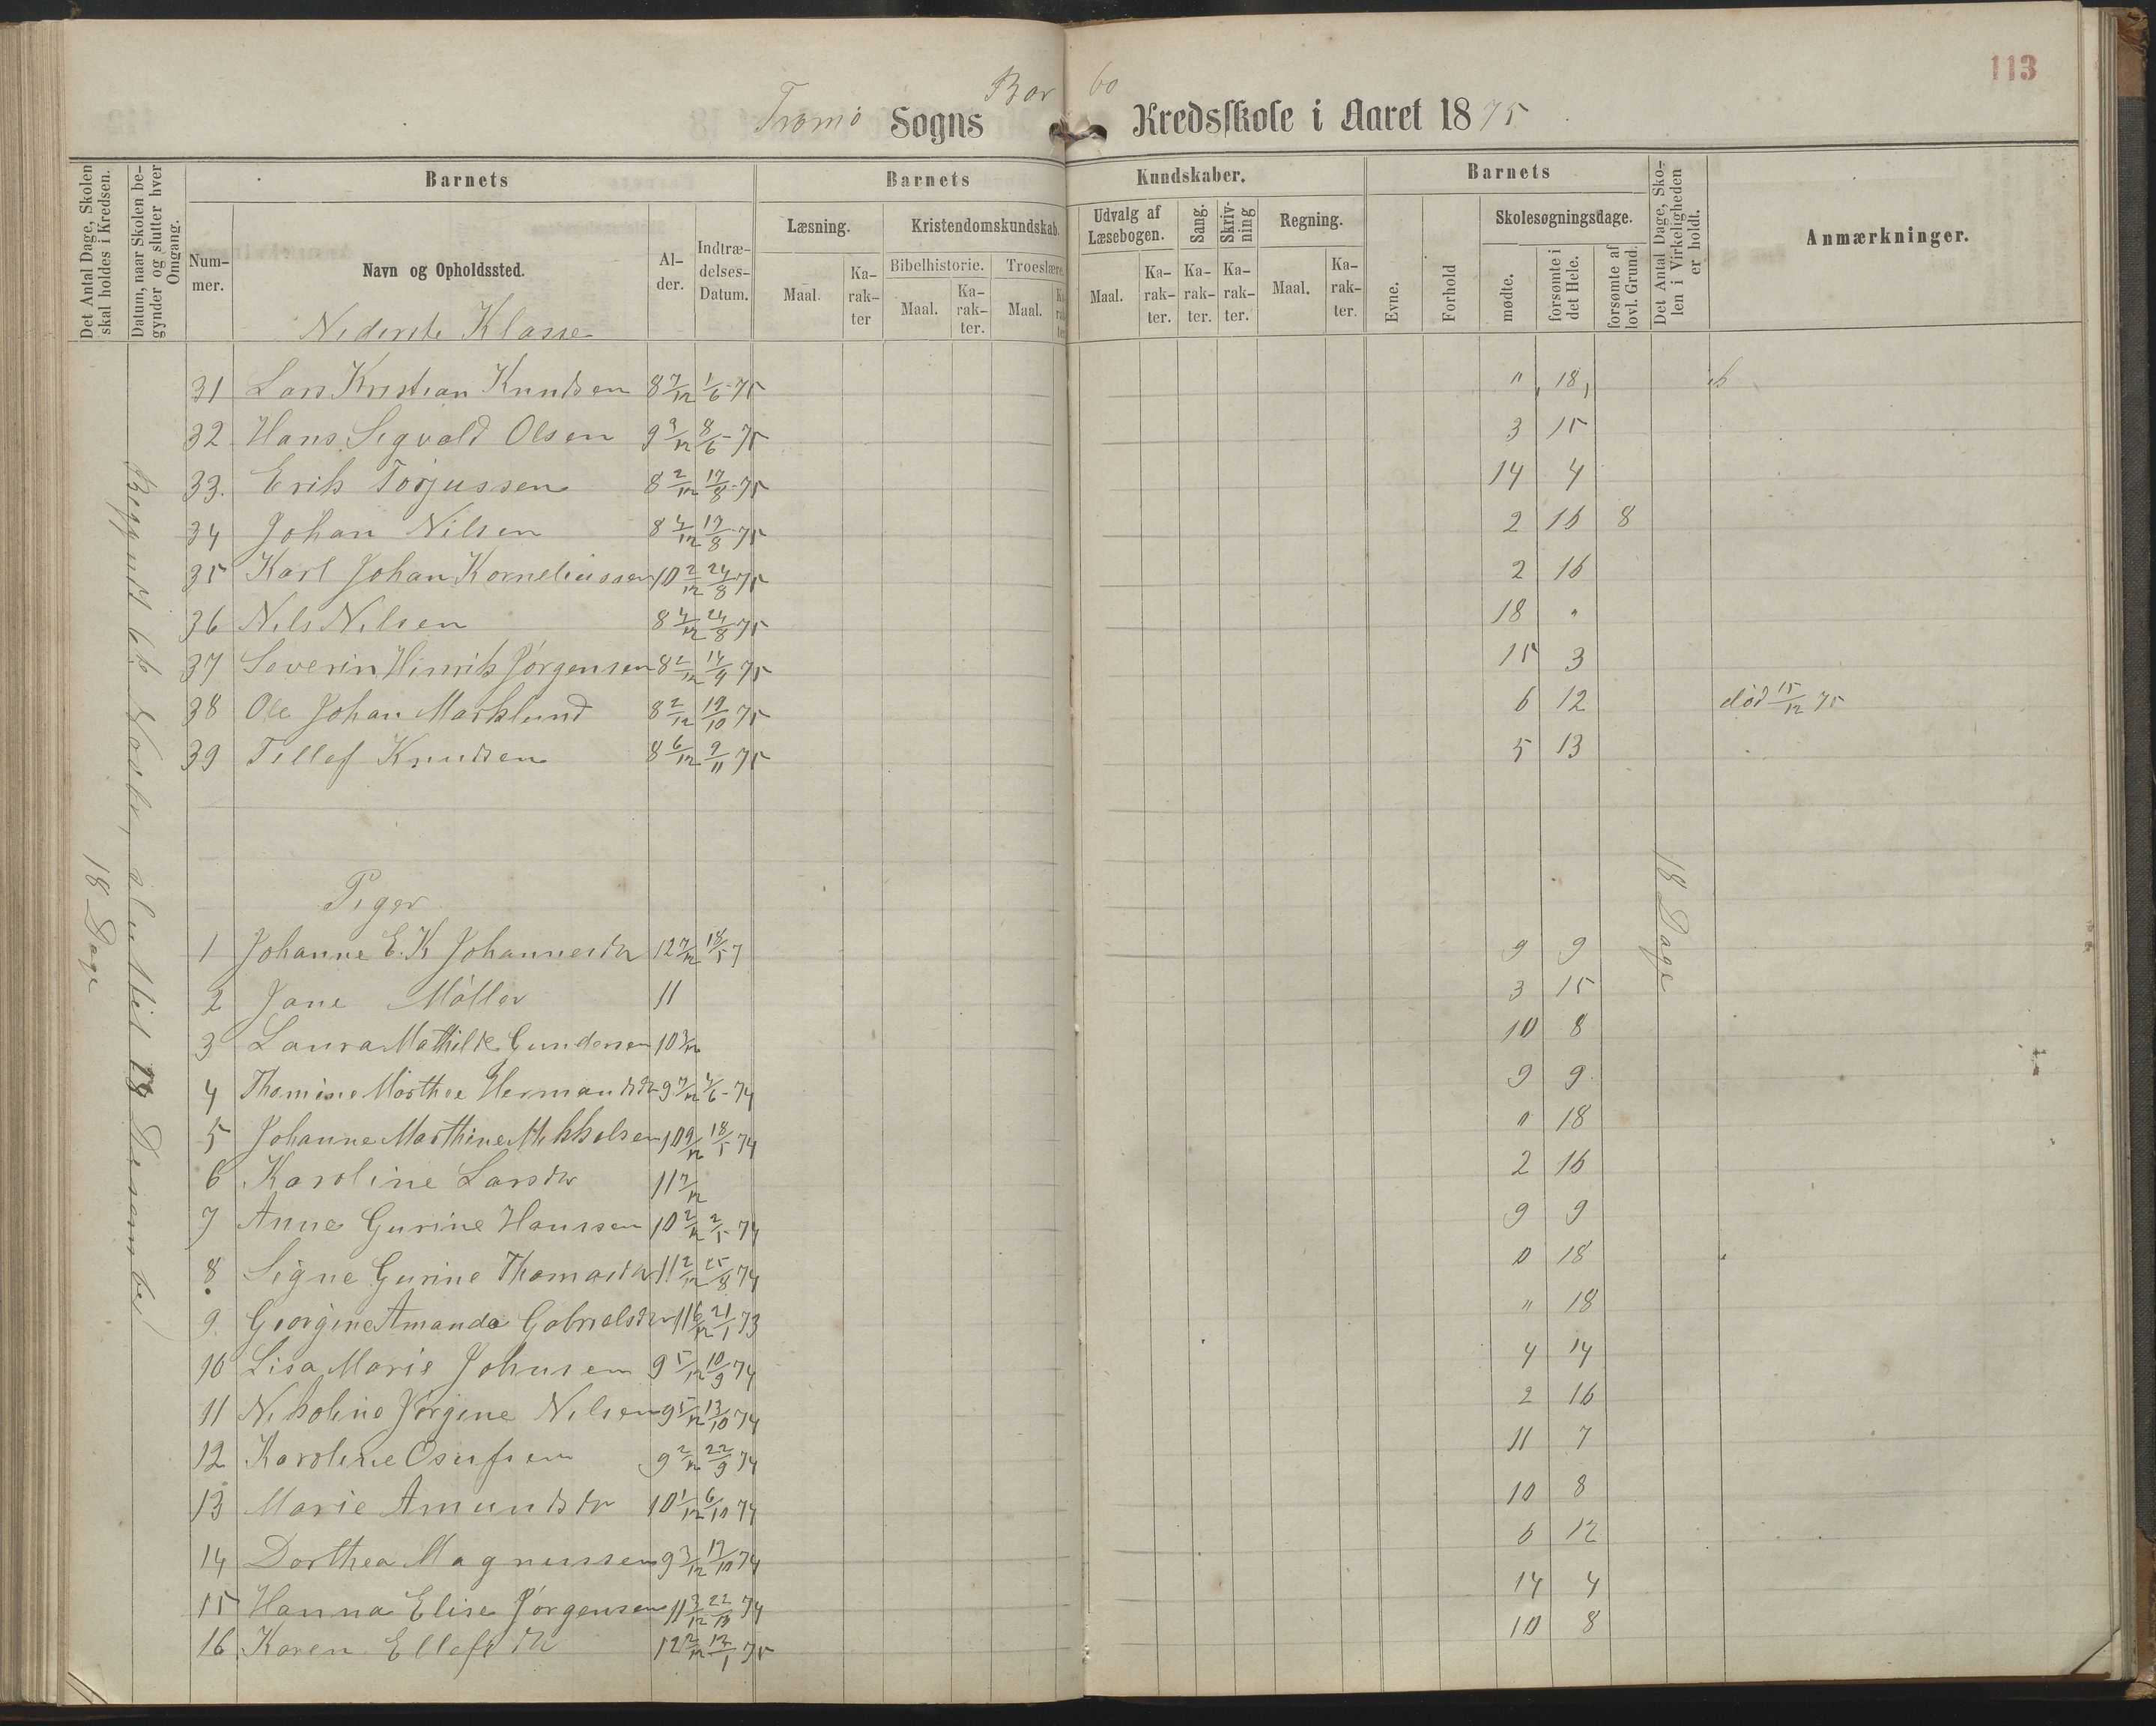 113
Tromø Sogns Barbo Kredsskole i Aaret 1875
Det Antal Dage, Skolen skal holdes i Kredsen.
Datum, naar Skolen begynder og slutter hver Omgang.
Barnets
Nummer.
Navn og Opholdssted.
Alder.
Indtrædelses-Datum.
Barnets Kundskaber.
Læsning.
Maal.
Karakter
Kristendomskundskab.
Bibelhistorie.
Maal.
Karakter.
Troeslære.
Maal.
Udvalg af Læsebogen.
Maal.
Karakter.
Sang.
Karakter.
Skrivning
Karakter.
Regning.
Maal.
Karakter.
Barnets
Evne.
Forhold
Skolesøgningsdage.
mødte.
forsømte i det Hele.
forsømte af lovl. Grund.
Det Antal Dage, Skolen i Virkeligheden er holdt.
Anmærkninger.
Nederste Klasse
31 Lars Kristian Knudsen 8 7/12 1/6-75 " 18
32 Hans Sigvald Olsen 9 9/12 8/6-75 3 15
33. Erik Torjussen 8 2/12 17/8-75 14 4
34 Johan Nilsen 8 4/12 17/8-75 2 16 8
35 Karl Johan Korneliussen 10 2/12 24/8 75 2 16
36 Nils Nilsen 8 4/12 24/8 75 18 "
37 Severin Hinrik Jørgensen 8 2/12 14/9 75 15 3
38 Ole Johan Marklund 8 2/12 19/10 75 6 12 død 15/12 75
39 Tellef Knudsen 8 6/12 9/11 75 5 13
18 Dage
18 Dage
Piger
1 Johanne E. K Johannesdtr 12 7/12 18/5 7 9 9
2 Jane Møller 11 3 15
3 Laura Mathilde Gundersen 10 3/12 10 8
4 Thomine Marthea Hermansdtr 9 7/12 4/6-74 9 9
5 Johanne Marthine Mikkelsen 10 9/12 18/5 74 " 18
6 Karoline Larsdtr 11 7/12 2 16
7 Anne Gurine Hanssen 10 2/12 2/5 74 9 9
8 Signe Gurine Thomasdtr 11 2/12 25/8 74 0 18
9. Georgine Amanda Gabrielsdtr 11 6/12 21/1 73 " 18
10 Lisa Marie Johnsen 9 5/12 10/9 74 4 14
11 Nikoline Jørgine Nilsen 9 5/12 13/10 74 2 16
12 Karoline Osufsen 9 2/12 22/9 74 11 7
13 Marie Amundsdtr 10 1/12 6/10 74 10 8
14 Dorthea Magnussen 9 3/12 17/10 74 6 12
15 Hanna Elise Jørgensen 11 3/12 22/10 74 14 4
16 Karen Ellefsdtr 12 2/12 12/1 75 10 8